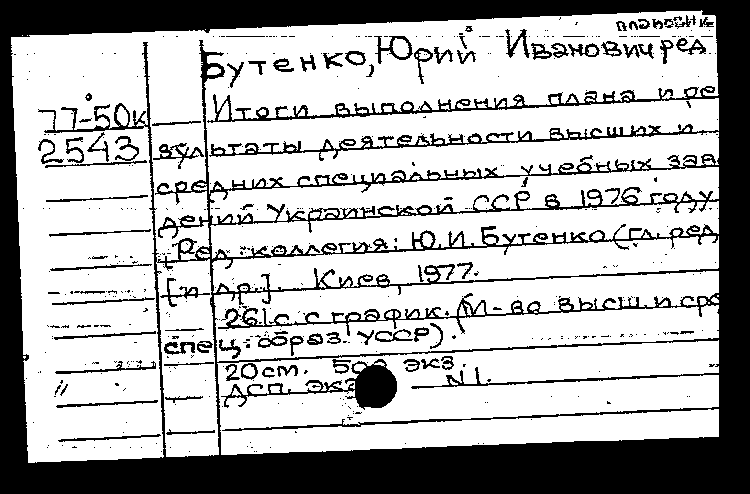 плановик
Бутенко, Юрий Иванович ред
77-50к
2543
Итоги выполнения плана и ре
зультаты деятельности высших и
средних специальных учебных заве
дений Украинской ССР в 1976 году
[Ред. коллегия: Ю.И. Бутенко (гл. ред.
[и др.]. Киев, 1977.
261 с. с график. (М-во высш. и сре
спец. образ. УССР).
20см. 500 экз.
ДСП. экз N 1.